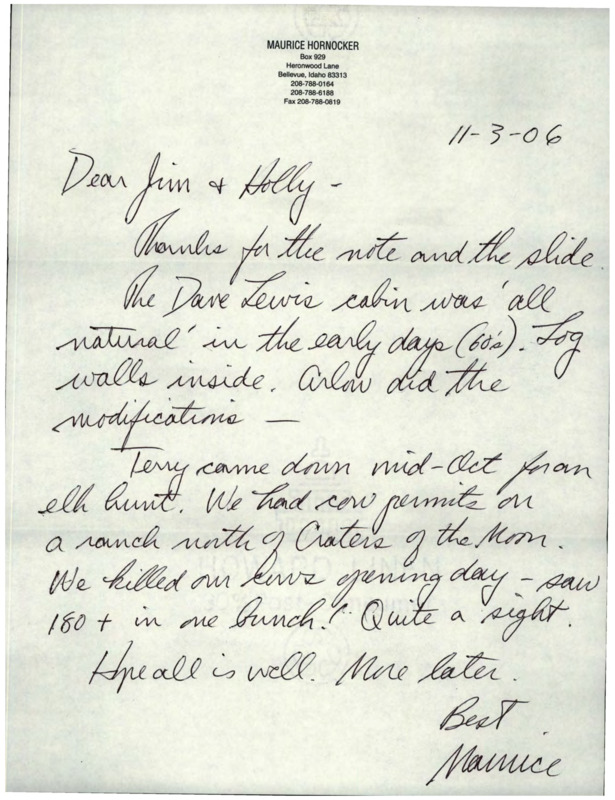 MAURICE HORNOCKER
Box 929
Heronwood Lane
Bellevue, Idaho 83313
208-788-0164
208-788-6188
Fax 208-788-0819
11-3-06
Dear Jim & Holly -
Thanks for the note and the slide.
The Dave Lewis cabin was 'all
natural' in the early days (60's). Log
walls inside. Arlow did the
modifications —
Terry came down mid-Oct for an
elk hunt. We had cow permits on
a ranch north of Craters of the Moon.
We killed our cows opening day - saw
180+ in one bunch! Quite a sight.
Hope all is well. More later.
Best
Maurice